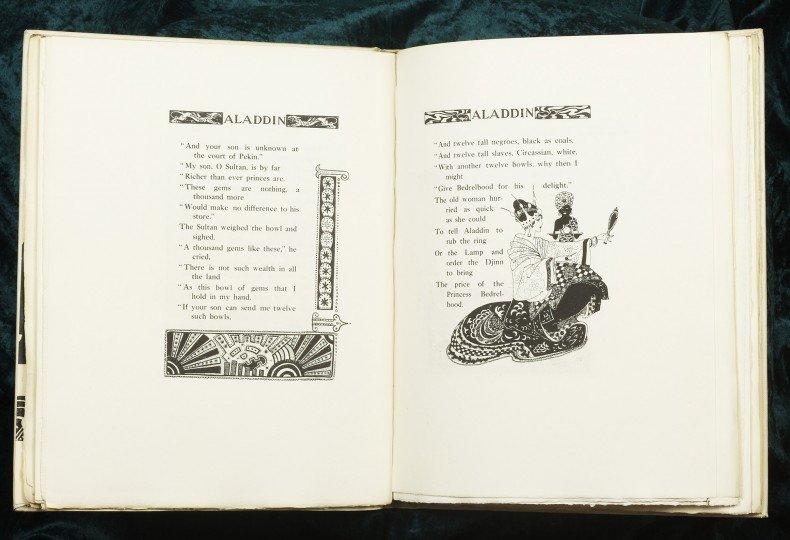 ALADDIN
"And your son is unknown at
the court of Pekin."
"My son, O Sultan, is by far
"Richer than ever princes are.
"These gems are nothing, a
thousand more
"Would make no difference to his
store."
The Sultan weighed the bowl and
sighed.
"A thousand gems like these," he
cried,
"There is not such wealth in all
the land
"As this bowl of gems that I
hold in my hand.
"If your son can send me twelve
such bowls,
ALADDIN
"And twelve tall negroes, black as coals,
"And twelve tall slaves, Circassian, white,
"With another twelve bowls, why then I
might
"Give Bedrelbood for his delight."
The old woman hur-
ried as quick
as she could
To tell Aladdin to
rub the ring
Or the Lamp and
order the Djinn
to bring
The price of the
Princess Bedrel-
bood.